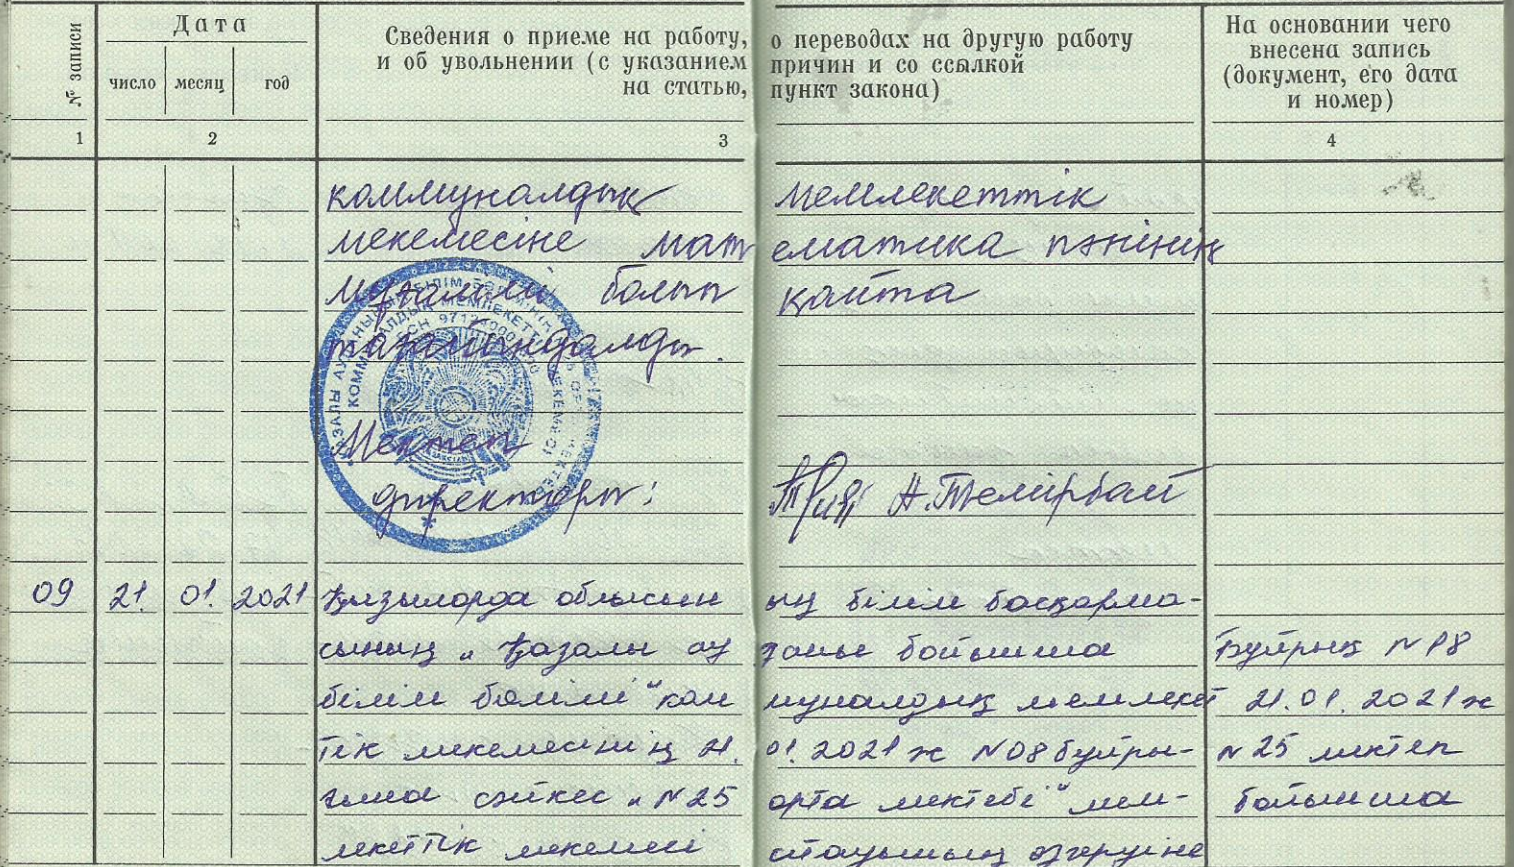 № записи
Дата
число месяц год
Сведения о приеме на работу, о переводах на другую работу
и об увольнении (с указанием причин и со ссылкой
на статью, пункт закона)
На основании чего
внесена запись
(документ, его дата
и номер)
1 2 3 4
коммуналдық мемлекеттік
мекемесіне математика пәнінің
мұғалімі болып қайта
тағайындалды.
Мектеп
директоры: А.Темірбай
09 21. 01. 2021 Қызылорда облысының білім басқарма-
сының "Қазалы ауданы бойынша Бұйрық N
білім бөлімі" коммуналдық мемлекет 21.01.2021ж
тік мекемесінің 21.01.2021ж N08 бұйры- N25 мектеп
ғына сәйкес "N25 орта мектебі" мем- бойынша
лекеттік мекемесі атауының өзгеруіне